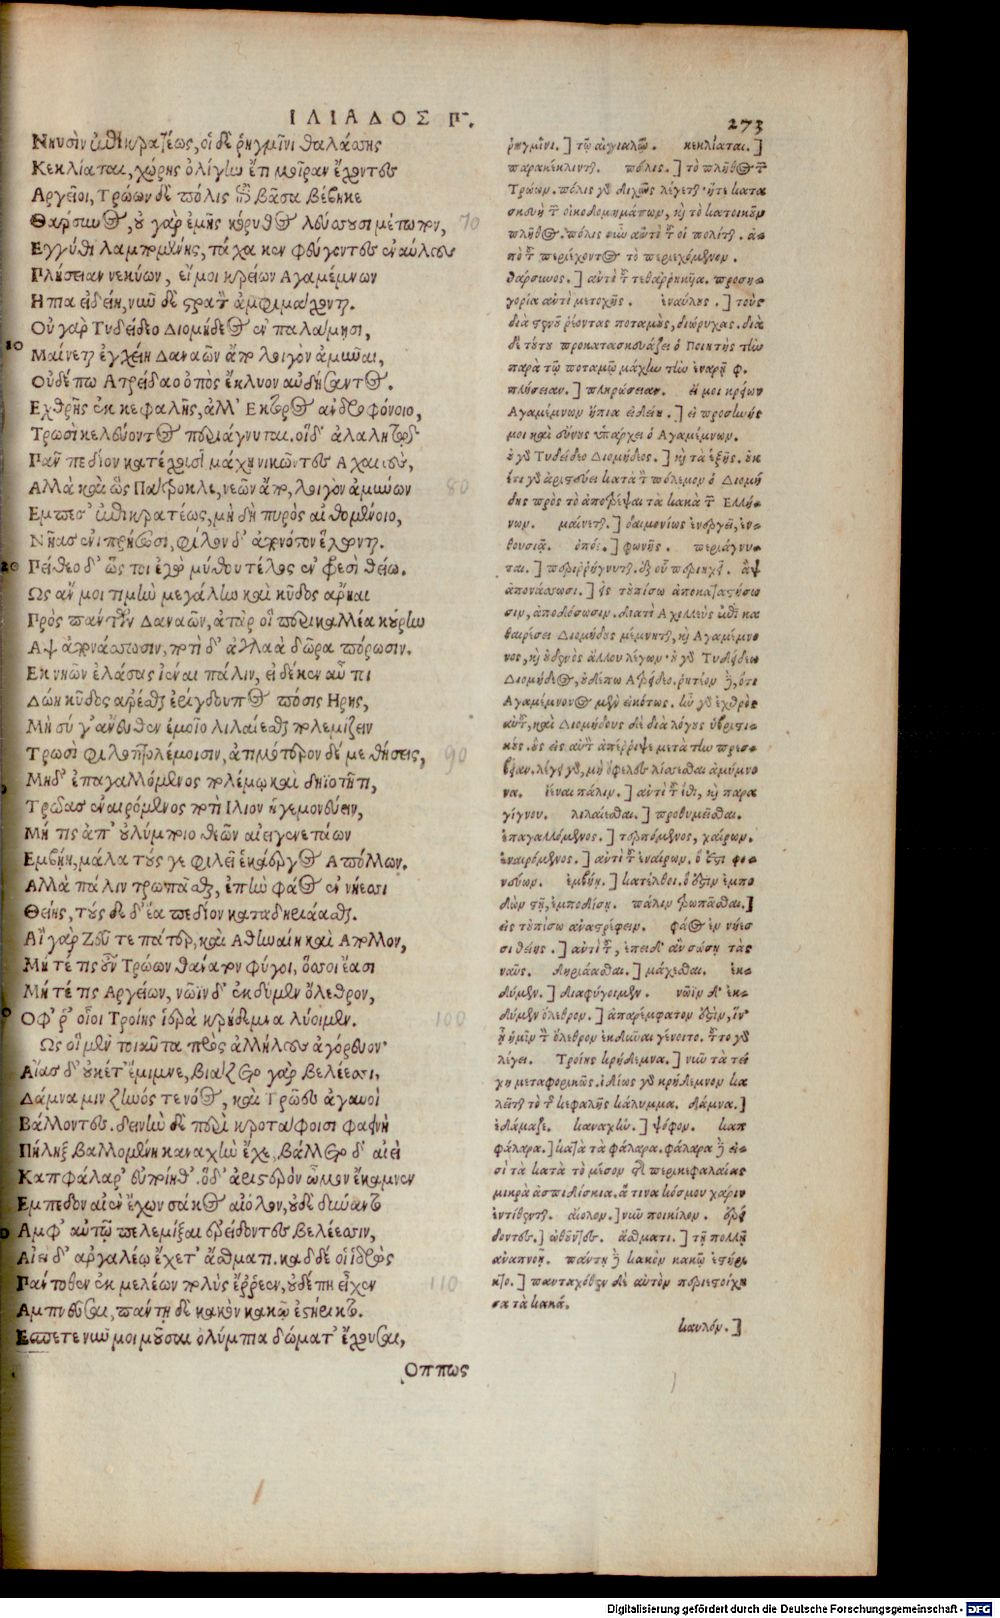 ΙΛΙΑΔΟΣ Π. 273
Νηυσὶν ἐπικρατέως, οἱ δὲ ῥηγμῖνι θαλάσσης
Κεκλίαται, χώρης ὀλίγην ἔτι μοῖραν ἔχοντες
Αργεῖοι, Τρώων δὲ πόλις ἐπὶ πᾶσα βέβηκε
Θάρσυνος, οὐ γὰρ ἐμῆς κόρυθος λεύσουσι μέτωπον,
Εγγύθι λαμπομένης, τάχα κεν φεύγοντες ἐναύλους
Πλήσειαν νεκύων, εἴ μοι κρείων Αγαμέμνων
Ηπια εἰδείη, νῦν δὲ στρατὸν ἀμφιμάχονται.
Οὐ γὰρ Τυδείδεο Διομήδεος ἐν παλάμησι,
10 Μαίνεται ἐγχείη Δαναῶν ἀπὸ λοιγὸν ἀμῦναι,
Οὐδέ πω Ατρείδαο ὀπὸς ἔκλυον αὐδήσαντος.
Εχθρῆς ἐκ κεφαλῆς, ἀλλ' Εκτορος ἀνδροφόνοιο,
Τρωσὶ κελεύοντος περιάγνυται. οἱ δ' ἀλαλητῷ
Πᾶν πεδίον κατέχουσι μάχῃ νικῶντες Αχαιούς,
Αλλὰ καὶ ὣς Πάτροκλε, νεῶν ἄπο, λοιγὸν ἀμύνων 80
Εμπεσ' ἐπικρατέως, μὴ δὴ πυρὸς αἰθομένοιο,
Νῆας ἐνιπρήσωσι, φίλον δ' ἀπὸ νόστον ἕλωνται.
20 Πείθεο δ' ὥς τοι ἐγὼ μύθου τέλος ἐν φρεσὶ θείω.
Ως ἄν μοι τιμὴν μεγάλην καὶ κῦδος ἄρηαι
Πρὸς πάντων Δαναῶν, ἀτὰρ οἱ περικαλλέα κούρην
Αψ ἀπονάσσωσιν, ποτὶ δ' ἀγλαὰ δῶρα πόρωσιν.
Εκ νηῶν ἐλάσας ἰέναι πάλιν, εἰ δέ κεν αὖ τοι
Δώῃ κῦδος ἀρέσθαι ἐρίγδουπος πόσις Ηρης,
Μὴ σύ γ' ἄνευθεν ἐμοῖο λιλαίεσθαι πολεμίζειν
Τρωσὶ φιλοπτολέμοισιν, ἀτιμότερον δέ με θήσεις, 90
Μηδ' ἐπαγαλλόμενος πολέμῳ καὶ δηϊοτῆτι,
Τρῶας ἐναιρόμενος ποτὶ Ιλιον ἡγεμονεύειν,
Μή τις ἀπ' οὐλύμποιο θεῶν αἰειγενετάων
Εμβήῃ, μάλα τούς γε φιλεῖ ἑκάεργος Απόλλων.
Αλλὰ πάλιν τρωπᾶσθαι, ἐπὴν φάος ἐν νήεσσι
Θείης, τοὺς δέ δ' ἔα πεδίον κατα δηριάασθαι.
Αῒ γὰρ Ζεῦ τε πάτερ, καὶ Αθηναίη καὶ Απολλον,
Μή τέ τις οὖν Τρώων θάνατον φύγοι, ὅσσοι ἔασι
Μή τέ τις Αργείων, νῶϊν δ' ἐκδῦμεν ὄλεθρον,
Οφ' ῥ' οἶοι Τροίης ἱερὰ κρήδεμνα λύοιμεν. 100
Ως οἱ μὲν τοιαῦτα πρὸς ἀλλήλους ἀγόρευον·
Αἴας δ' οὐκέτ' ἔμιμνε, βιάζετο γὰρ βελέεσσι,
Δάμνα μιν ζηνός τε νόος, καὶ Τρῶες ἀγαυοὶ
Βάλλοντες. δεινὴν δὲ περὶ κροτάφοισι φαεινὴ
Πήληξ βαλλομένη καναχὴν ἔχε, βάλλετο δ' αἰεὶ
Καπφάλαρ' εὐποίηθ'. ὅδ' ἀριστερὸν ὦμον ἔκαμνεν
Εμπεδον αἰὲν ἔχων σάκος αἰόλον, οὐδὲ δύναντο
Αμφ' αὐτῷ πελεμίξαι ἐρείδοντες βελέεσσιν,
Αἰεὶ δ' ἀργαλέῳ ἔχετ' ἄσθματι. καδδέ οἱ ἱδρὼς
Πάντοθεν ἐκ μελέων πολὺς ἔρρεεν, οὐδέ πη εἶχεν 110
Αμπνεῦσαι, πάντη δὲ κακὸν κακῷ ἐστήρικτο.
Εσπετε νῦν μοι μοῦσαι ὀλύμπια δώματ' ἔχουσαι,
Οππως
ῥηγμῖνι.] τῷ αἰγιαλῷ. κεκλίαται.]
παρακέκλινται. πόλις.] τὸ πλῆθος τῶν
Τρώων. πόλις γὰρ διχῶς λέγεται· ἥτε κατα
σκευὴ τῶν οἰκοδομημάτων, καὶ τὸ κατοικοῦν
πλῆθος. πόλις οὖν αὐτὶ τοῦ οἱ πολῖται. ἀ-
πὸ τοῦ περιέχοντος τὸ περιεχόμενον.
θάρσυνος.] αὐτὶ τοῦ τεθαρρηκυῖα. προση-
γορία αὐτὶ μετοχῆς. ἐναύλους.] τοὺς
διὰ στενοῦ ῥέοντας ποταμοὺς, διώρυχας. διὰ
δὲ τούτου προκατασκευάζει ὁ Ποιητὴς τὴν
παρὰ τῷ ποταμῷ μάχην τὴν ἐν αρῇ φ.
πλήσειαν.] πληρώσειαν. εἴ μοι κρείων
Αγαμέμνων ἤπια εἰδείη.] εἰ προσηνής
μοι καὶ εὔνους ὑπάρχει ὁ Αγαμέμνων.
οὐ γὰρ Τυδείδεο Διομήδεος.] καὶ τὰ ἑξῆς. οὐκ
ἔτι γὰρ ἀριστεύει κατὰ τὸν πόλεμον ὁ Διομή
δης πρὸς τὸ ἀποτρέψαι τὰ κακὰ τῶν Ελλή-
νων. μαίνεται.] δαιμονίως ἐνεργεῖ, ἐν-
θουσιᾷ. ὀπός.] φωνῆς. περιάγνυ-
ται.] περιρρήγνυται. ἐξ οὗ περιηχεῖ. ἂψ
ἀπονάσσωσι.] εἰς τοὐπίσω ἀποκαταστήσω
σιν, ἀποδώσωσιν. διατὶ Αχιλλεὺς ἐπὶ κα
θαιρέσει Διομήδους μέμνηται, καὶ Αγαμέμνο
νος, καὶ οὐδενὸς ἄλλου λέγων· οὐ γὰρ Τυδείδεω
Διομήδεος, οὐδέπω Ατρείδεο. ῥητέον δὲ, ὅτι
Αγαμέμνονος μὲν εἰκότως. ἦν γὰρ ἐχθρὸς
αὐτοῦ, καὶ Διομήδους δὲ διὰ λόγους ὑβριστι-
κούς. οὓς εἰς αὐτὸν ἀπέρριψε μετὰ τὴν πρεσ-
βείαν. λέγει γὰρ, μὴ ὄφελες λίσσεσθαι ἀμύμονα
να. ἰέναι πάλιν.] αὐτὶ τοῦ ἴθι, καὶ παρα
γίγνου. λιλαίεσθαι.] προθυμεῖσθαι.
ἐπαγαλλόμενος.] τερπόμενος, χαίρων.
ἐναιρόμενος.] αὐτὶ τοῦ ἐναίρων. ὅ ἐστι φο-
νεύων. ἐμβήῃ.] κατέλθοι. ὅ ἐστιν ἐμπο
δὼν στῇ, ἐμποδίσῃ. πάλιν τρωπᾶσθαι.]
εἰς τοὐπίσω ἀναστρέφειν. φάος ἐν νήεσ
σι θείης.] αὐτὶ τοῦ, ἐπειδ' ἂν σώσῃ τὰς
ναῦς. δηριάασθαι.] μάχεσθαι. ἐκ-
δύμεν.] διαφύγοιμεν. νῶϊν δ' ἐκ-
δύμεν ὄλεθρον.] ἀπαρέμφατόν ἐστιν, ἵν'
ᾖ ἡμῖν τὸν ὄλεθρον ἐκδῦναι γένοιτο. τοῦτο γὰρ
λέγει. Τροίης κρήδεμνα.] νῦν τὰ τεί
χη μεταφορικῶς. ἰδίως γὰρ κρήδεμνον κα
λεῖται τὸ τῆς κεφαλῆς κάλυμμα. δάμνα.]
ἐδάμαζε. καναχὴν.] ψόφον. καπ
φάλαρα.] κατὰ τὰ φάλαρα. φάλαρα δὲ εἰ-
σὶ τὰ κατὰ τὸ μέσον τῆς περικεφαλαίας
μικρὰ ἀσπιδίσκια, ἅ τινα κόσμου χάριν
ἐντίθενται. αἰόλον.] νῦν ποικίλον. ἐρεί
δοντες.] ὠθοῦντες. ἄσθματι.] τῇ πολλῇ
ἀναπνοῇ. πάντη δὲ κακὸν κακῷ ἐστήρι
κτο.] πανταχόθεν δὲ αὐτὸν περιεστοίχι
σα τὰ κακά.
καυλόν.]
Digitalisierung gefördert durch die Deutsche Forschungsgemeinschaft - DFG